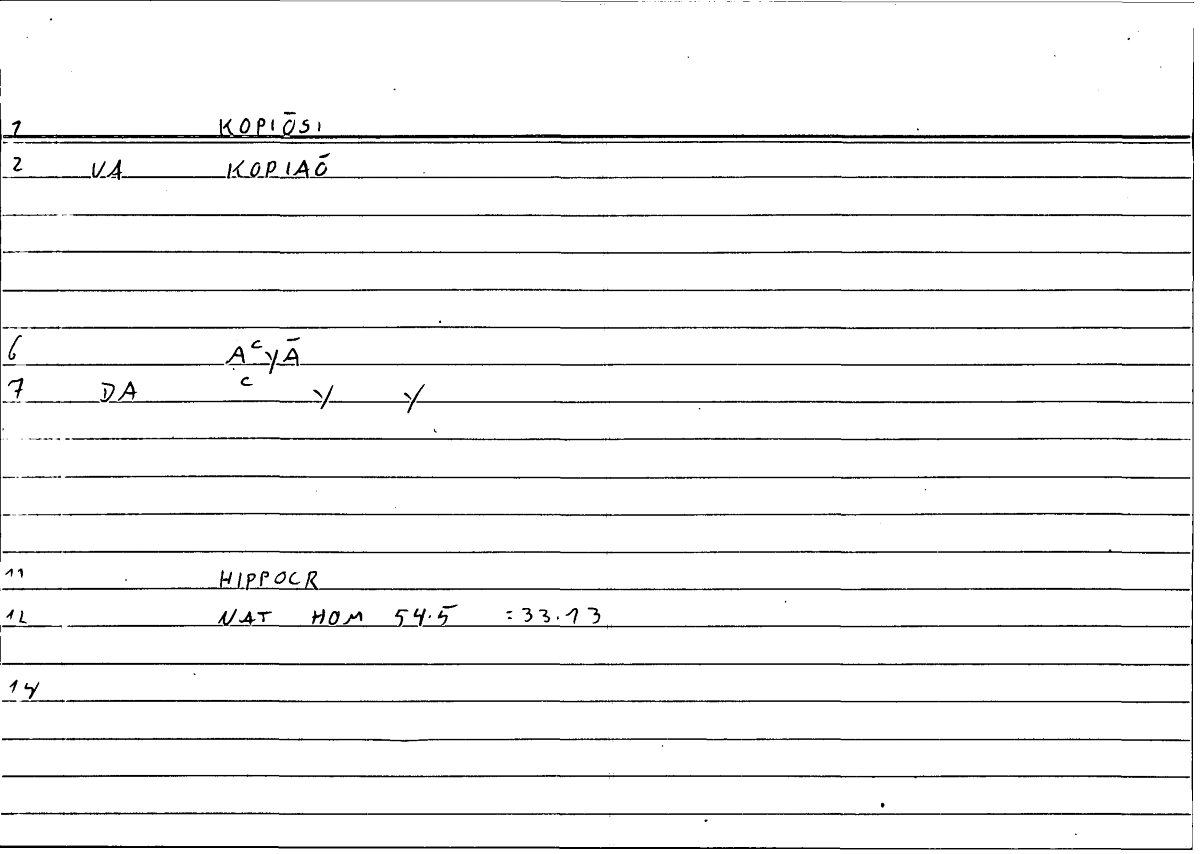 1 KOPIŌSI
2 VA KOPIAŌ
6 AᶜyĀ
7 DA c y y
11 HIPPOCR
12 NAT HOM 54.5 =33.13
14